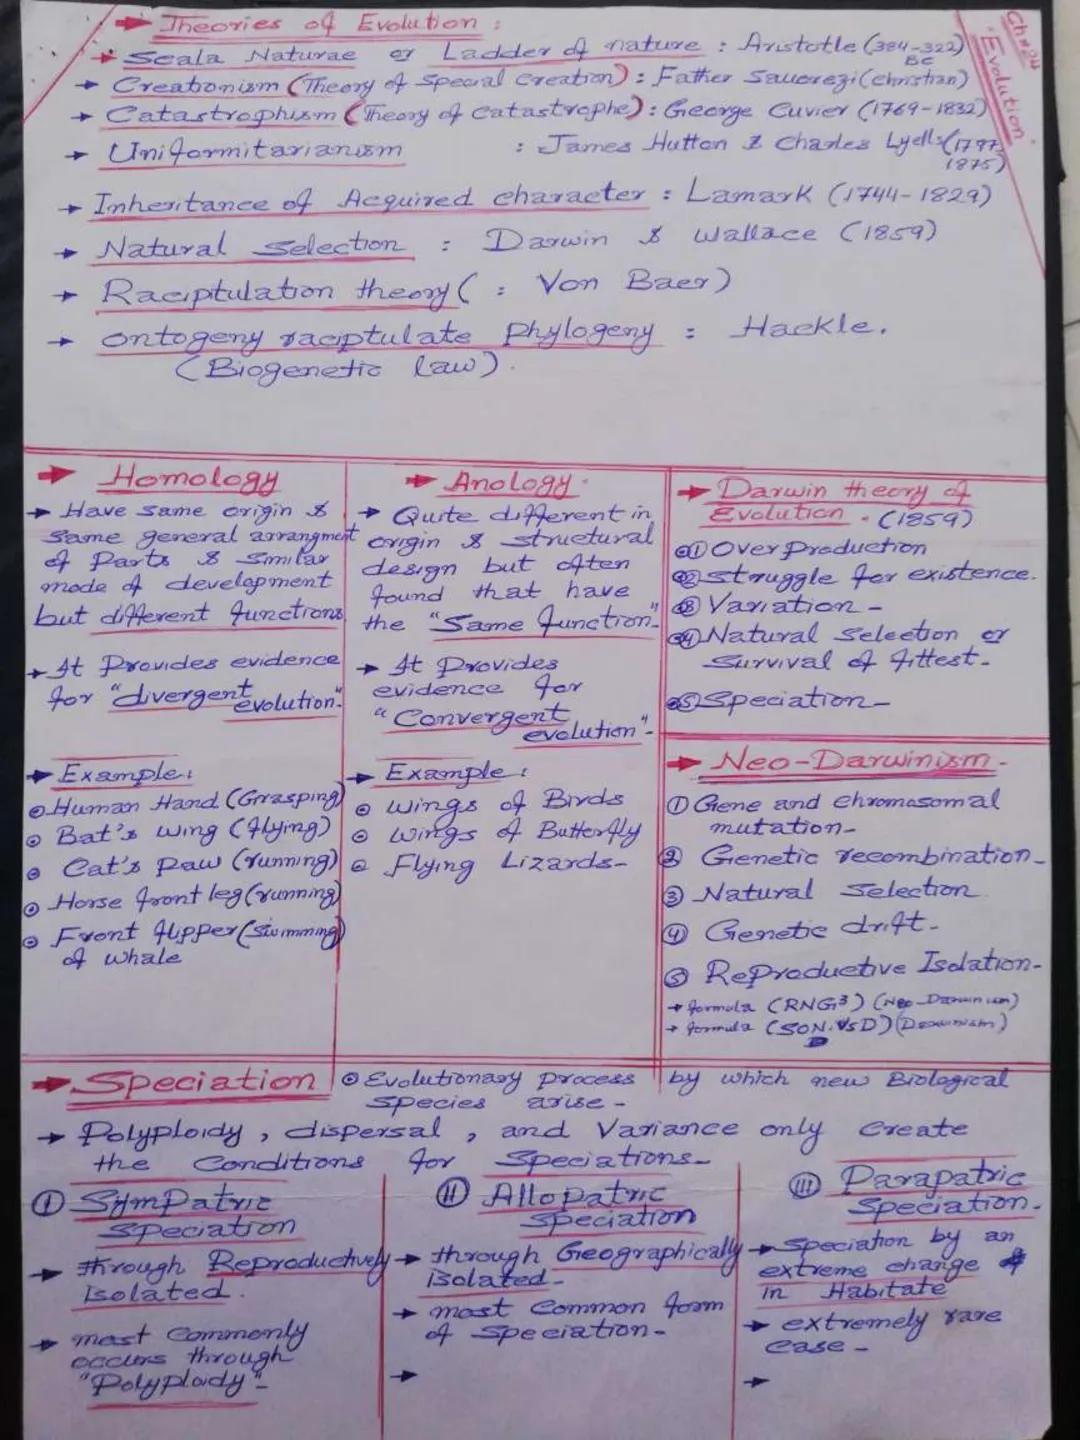 → Theories of Evolution :
Ch#24
"Evolution"
→ Scala Naturae or Ladder of nature : Aristotle (384-322)
BC
→ Creationism (Theory of Special Creation) : Father (christian)
→ Catastrophism (Theory of catastrophe) : George Cuvier (1769-1832)
→ Uniformitarianism : James Hutton & Charles Lyells (1797
1875)
→ Inheritance of Acquired character : Lamark (1744-1829)
→ Natural Selection : Darwin & Wallace (1859)
→ Raciptulation theory ( : Von Baer)
→ Ontogeny raciptulate Phylogeny : Hackle.
(Biogenetic law).
→ Homology
→ Have same origin &
same general arrangment
of Parts & Similar
mode of development
but different functions
→ It Provides evidence
for "divergent
evolution".
→ Example:
Human Hand (Grasping)
Bat's wing (flying)
Cat's Paw (running)
Horse front leg (running)
Front flipper (Swimming)
of whale
→ Anology.
→ Quite different in
origin & structural
design but often
found that have
the "Same function"-
→ It Provides
evidence for
"Convergent
evolution"-
→ Example :
wings of Birds
wings of Butterfly
Flying Lizards-
→ Darwin theory of
Evolution. (1859)
① Over Production
② struggle for existence.
③ Variation -
④ Natural Selection or
Survival of fittest-
⑤ Speciation-
→ Neo-Darwinism-
① Gene and chromosomal
mutation-
② Genetic recombination-
③ Natural Selection
④ Genetic drift-
⑤ Reproductive Isolation-
→ formula (RNG³) (Neo-Darwinism)
→ formula (SON.VSD) (Darwinism)
→ Speciation
Evolutionary process by which new Biological
species arise -
→ Polyploidy, dispersal, and Variance only Create
the Conditions for Speciations-
① Sympatric
speciation
→ through Reproductively
isolated.
→ most commonly
occurs through
"Polyploidy"-
⑪ Allopatric
speciation
→ through Geographically
isolated-
→ most common form
of Speciation-
→
⑪⑪ Parapatric
Speciation-
→ speciation by an
extreme change
in Habitate
→ extremely rare
case -
→